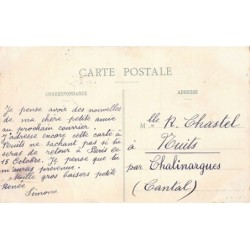 CARTE POSTALE
CORRESPONDANCE
Je pense avoir des nouvelles
de ma chère petite amie
au prochain courrier.
J'adresse encore cette carte à
Nuits ne sachant pas si tu
seras de retour à Paris le
15 Octobre. Je pense que tu
m'auras prévenue.
Mille gros baisers petite
Renée
Simone
ADRESSE
Mlle R. Chastel
à Nuits
par Chalinargues
(Cantal)